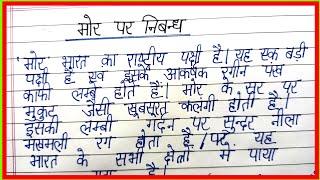 मोर पर निबन्ध
मोर भारत का राष्ट्रीय पक्षी है। यह एक बड़ी
पक्षी है एवं इसके आकर्षक रंगीन पंख
काफी लम्बे होते हैं। मोर के सर पर
मुकुट जैसी खूबसूरत कलंगी होती है।
इसकी लम्बी गर्दन पर सुन्दर नीला
मखमली रंग होता है। यह
भारत के सभी क्षेत्रों में पाया
है।